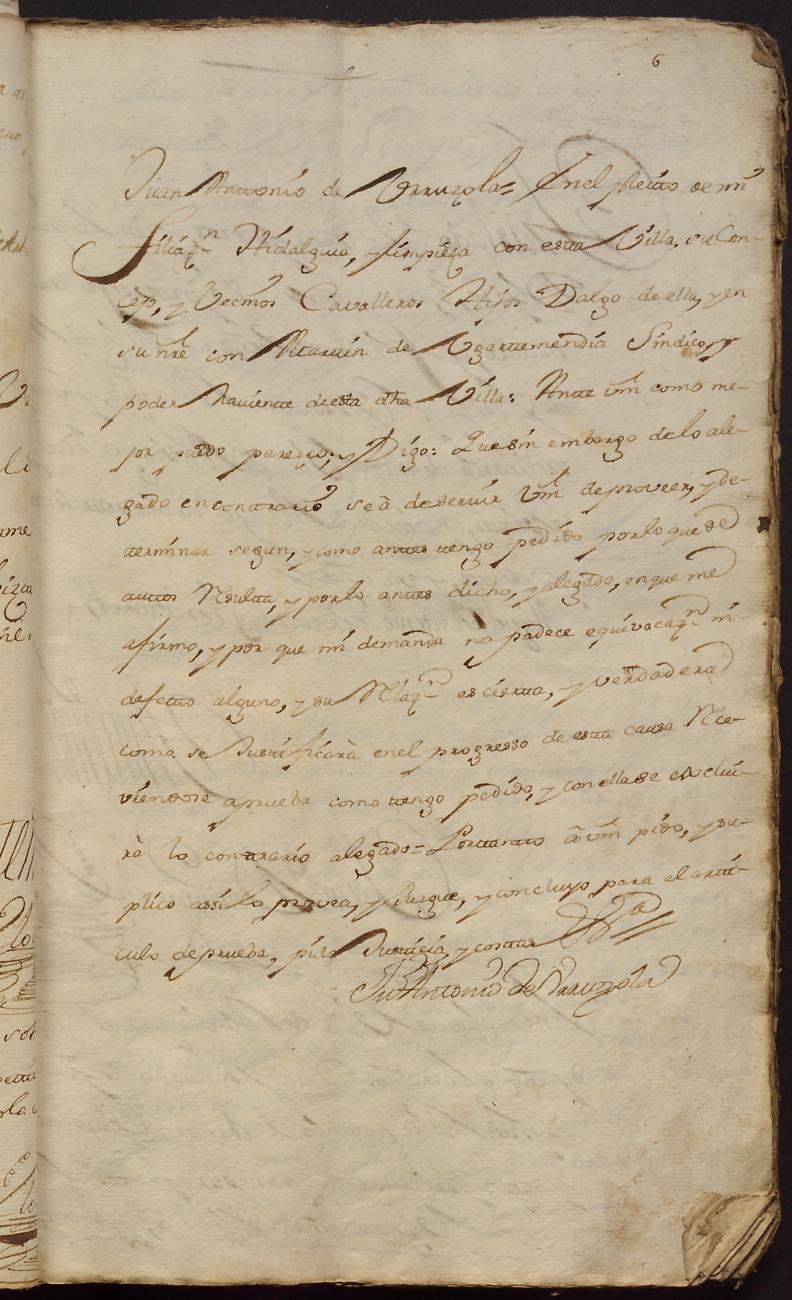 6
Juan Anttonio de Urruzola= En el pleitto de mi
filiazn Hidalguia, y limpieza con esta Villa, su Con-
cejo, y Vecinos Cavalleros Hijos Dalgo de ella, y en
su nre con Martin de Ugartemendia Sindico, y
poder haviente de esta dha Villa: Antte Vm como me-
jor puedo parezco, y Digo: Que sin embargo de lo ale-
gado en contrario se à de servir Vm de proveer, y de-
terminar segun, y como antes tengo pedido por lo que de
auttos Resulta, y por lo antes dicho, y alegado, en que me
afirmo, y por que mi demanda no padece equivocazn ni
defecto alguno, y su Relazn es cierta, y verdadera
como se Justificarà en el progresso de esta causa Rece-
viendose aprueba como tengo pedido, y con ella se escluì-
rà lo contrario alegado= Porttantto à Vm pido, y su-
plico assi lo provea, y Juzgue, y concluyo para el artí-
culo de prueba, pido Justicia, y costas
Ju Antonio de Vrruzola